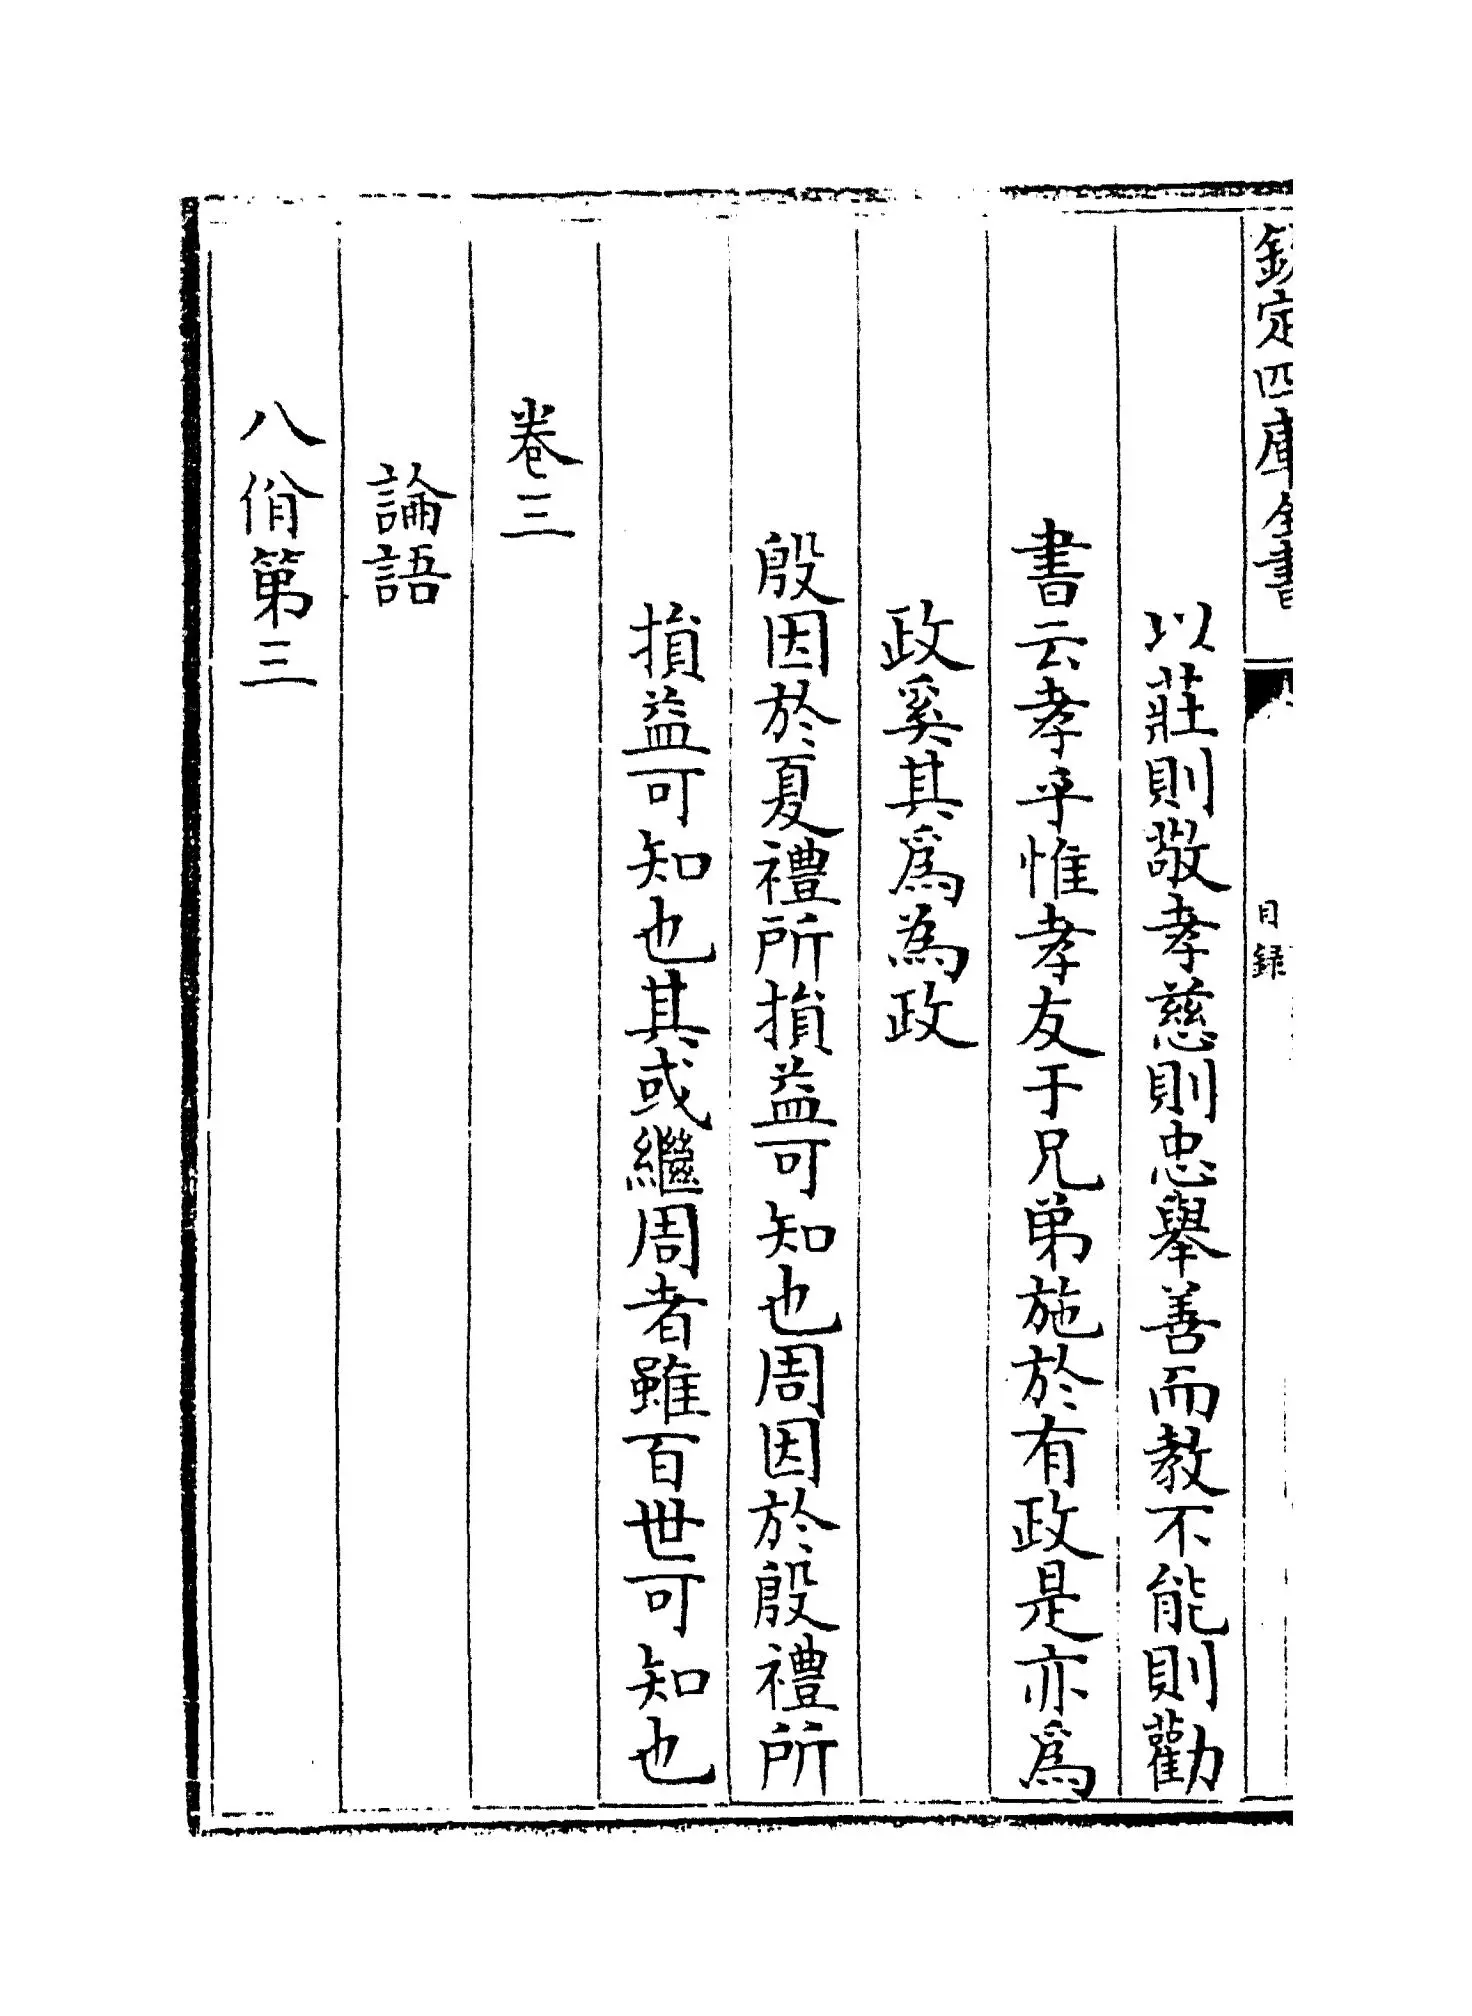 欽定四庫全書
目録
以莊則敬孝慈則忠舉善而教不能則勸
書云孝乎惟孝友于兄弟施於有政是亦爲
政奚其爲為政
殷因於夏禮所損益可知也周因於殷禮所
損益可知也其或繼周者雖百世可知也
卷三
論語
八佾第三